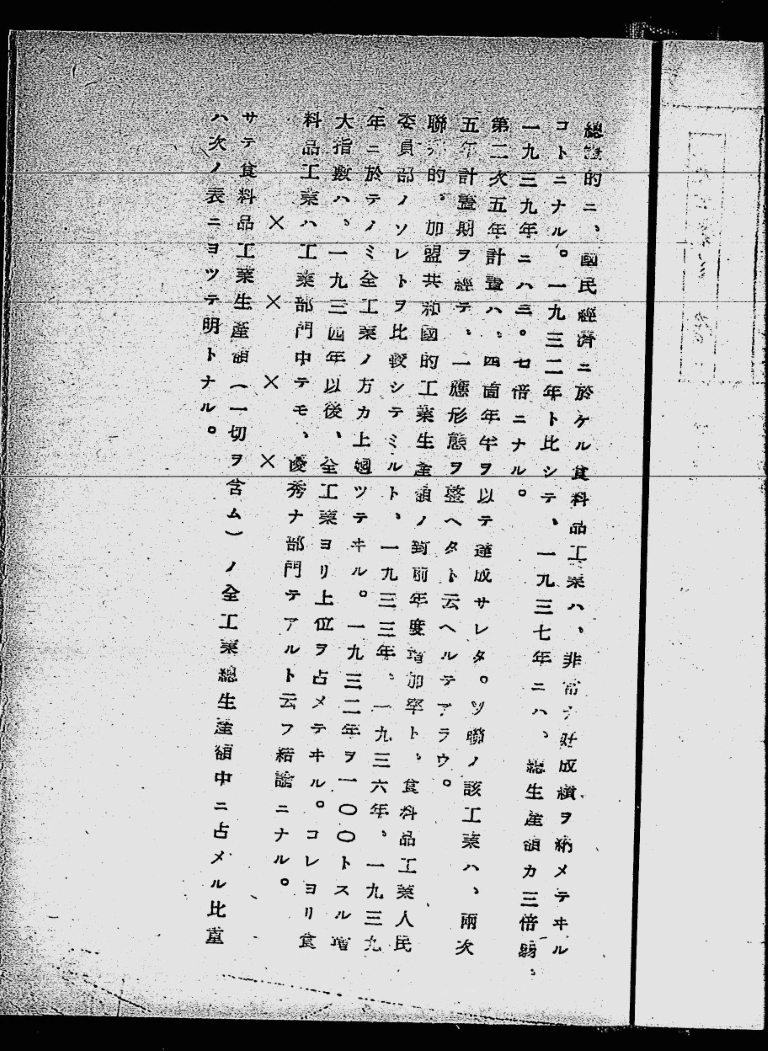 總體的ニ、國民經濟ニ於ケル食料品工業ハ、非常ナ好成績ヲ納メテヰル
コトニナル。一九三二年ト比シテ、一九三七年ニハ、總生産額カ三倍弱、
一九三九年ニハ三。七倍ニナル。
第二次五年計畫ハ、四箇年半ヲ以テ達成サレタ。ソ聯ノ該工業ハ、兩次
五年計畫期ヲ經テ、一應形態ヲ整ヘタト云ヘルテアラウ。
聯邦的、加盟共和國的工業生産額ノ對前年度増加率ト、食料品工業人民
委員部ノソレトヲ比較シテミルト、一九三三年、一九三六年、一九三九
年ニ於テノミ全工業ノ方カ上廻ツテヰル。一九三二年ヲ一〇〇トスル増
大指數ハ、一九三四年以後、全工業ヨリ上位ヲ占メテヰル。コレヨリ食
料品工業ハ工業部門中テモ、優秀ナ部門テアルト云フ結論ニナル。
×　×　×　×
サテ食料品工業生産額（一切ヲ含ム）ノ全工業總生産額中ニ占メル比重
ハ次ノ表ニヨツテ明トナル。